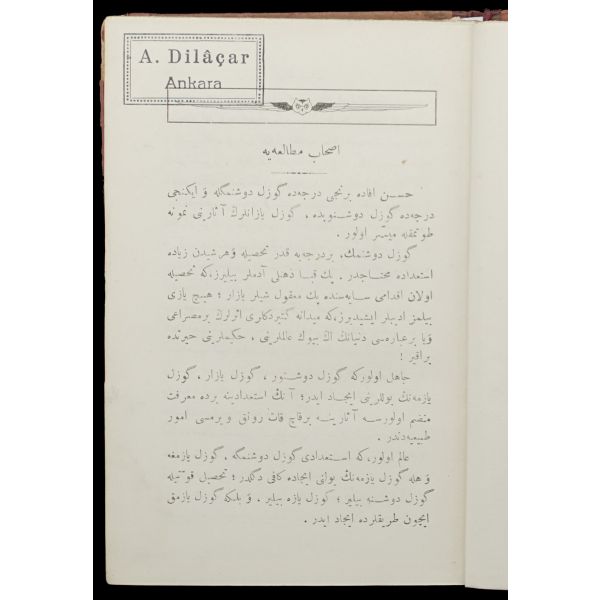 A. Dilâçar
Ankara
اصحاب مطالعه‌یه
حسن افاده برنجی درجه‌ده گوزل دوشنمگله و ایكنجی
درجه‌ده گوزل دوشنوبده ، گوزل یازانلرك آثارینی نمونه
طوتمقله میسر اولور .
گوزل دوشنمك، بردرجه‌یه قدر تحصیله و هرشیدن زیاده
استعداده محتاجدر . پك قبا ذهنلی آدملر بیلیرزكه تحصیله
اولان اقدامی سایه‌سنده پك معقول شیلر یازار ؛ هیچ یازی
بیلمز ادیبلر ایشیدیرزكه میدانه گتیردكلری اثرلرك برمصراعی
و یا برعباره‌سی دنیانك اڭ بیوك عالملرینی ، حكیملرینی حیرتده
براقیر !
جاهل اولوركه گوزل دوشنور ، گوزل یازار ، گوزل
یازمه‌نڭ یوللرینی ایجاد ایدر ؛ آنڭ استعدادینه برده معرفت
منضم اولورسه آثارینه برقاچ قات رونق ویرمسی امور
طبیعیه‌دندر .
عالم اولوركه استعدادی گوزل دوشنمگه ، گوزل یازمغه
و هله گوزل یازمه‌نڭ یولنی ایجاده كافی دگلدر ؛ تحصیل قوتیله
گوزل دوشنه بیلیر ؛ كوزل یازه بیلیر . و بلكه گوزل یازمق
ایچون طریقلرده ایجاد ایدر .